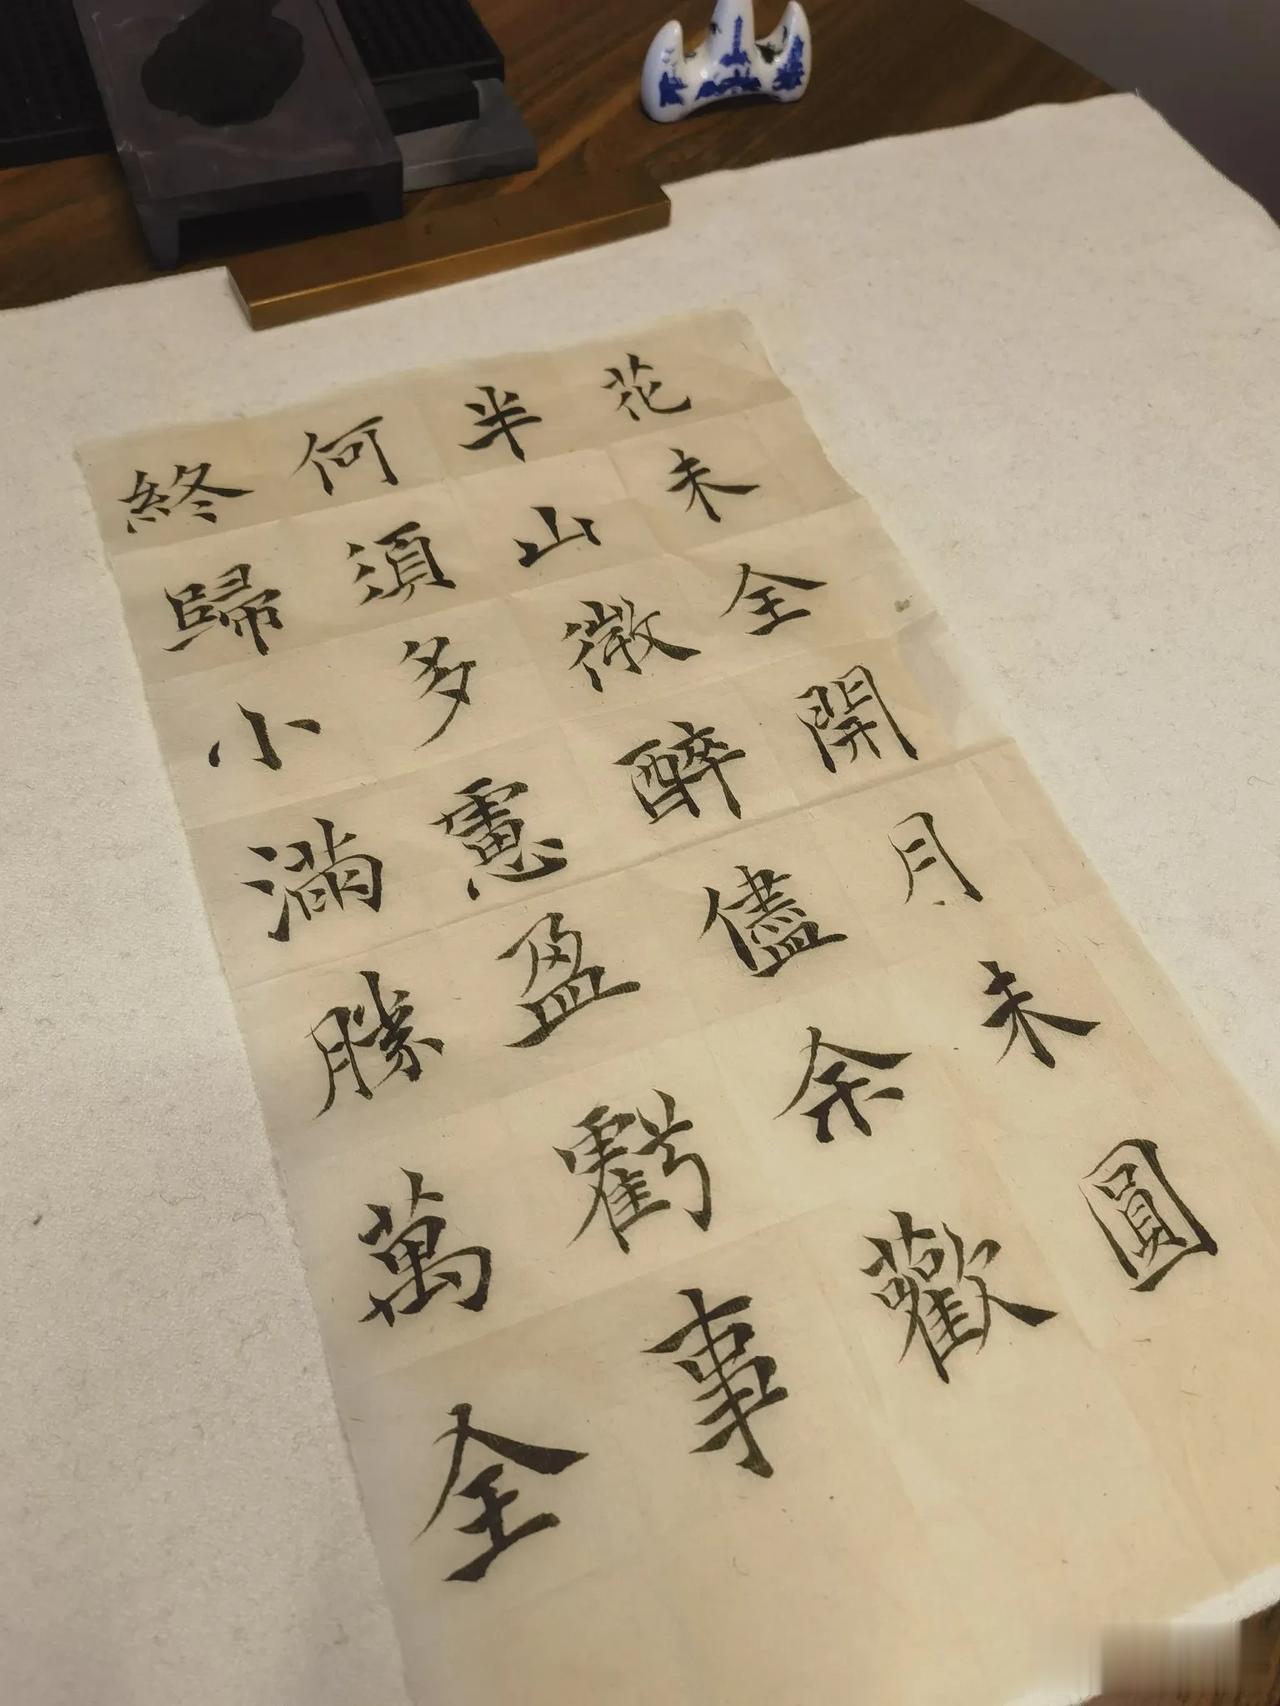 花未全開月未圓
半山微醉儘余歡
何須多慮盈虧事
終歸小滿勝萬全